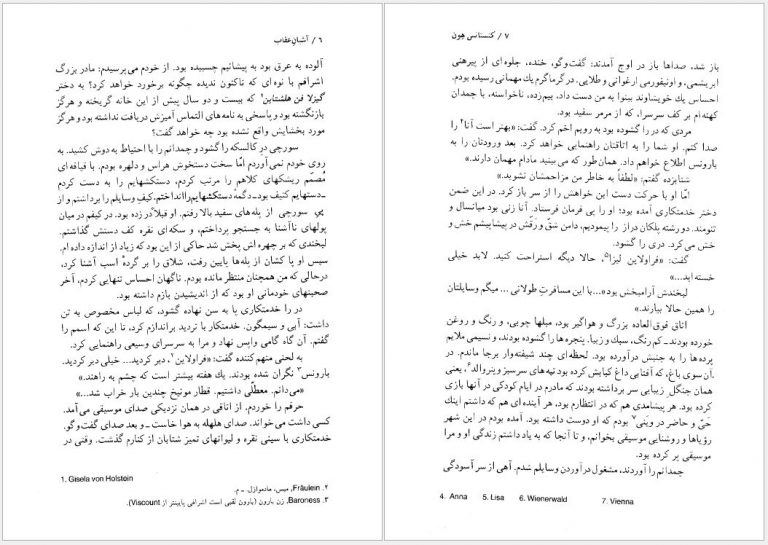 ۶ / آشیانِ عقاب
آلوده به عرق بود به پیشانیم چسبیده بود. از خودم می‌پرسیدم: مادر بزرگ
اشرافم با نوه‌ای که تاکنون ندیده چگونه برخورد خواهد کرد؟ به دختر
گیزلا فن هلشتاین¹ که بیست و دو سال پیش از این خانه گریخته و هرگز
بازنگشته بود و پاسخی به نامه‌های التماس آمیزش دریافت نداشته بود و هرگز
مورد بخشایش واقع نشده بود چه خواهد گفت؟
سورچی در کالسکه را گشود و چمدانم را با احتیاط به دوش کشید. به
روی خودم نمی‌آوردم امّا سخت دستخوش هراس و دلهره بودم. با قیافه‌ای
مُصمّم ریشکهای کلاهم را مرتب کردم، دستکشهایم را به دست کردم
ـ دستهایم کثیف بود ـ دگمه دستکشهایم را انداختم، کیف وسایلم را برداشتم و از
پی سورچی از پله‌های سفید بالا رفتم. او قبلا در زده بود. در کیفم در میان
پولهای ناآشنا به جستجو پرداختم، و سکه‌ای نقره کف دستش گذاشتم.
لبخندی که بر چهره اش پخش شد حاکی از این بود که زیاد از اندازه داده ام.
سپس او پا کشان از پله‌ها پایین رفت، شلاق را بر گردهٔ اسب آشنا کرد،
درحالی که من همچنان منتظر مانده بودم. ناگهان احساس تنهایی کردم، آخر
صحبتهای خودمانی او بود که از اندیشیدن بازم داشته بود.
در را خدمتکاری پا به سن نهاده گشود، که لباس مخصوص به تن
داشت: آبی و سیمگون. خدمتکار با تردید براندازم کرد، تا این که اسمم را
گفتم. آن گاه گامی واپس نهاد و مرا به سرسرای وسیعی راهنمایی کرد.
به لحنی متهم کننده گفت: «فراولاین²، دیر کردید... خیلی دیر کردید.
بارونس³ نگران شده بودند. یک هفته بیشتر است که چشم به راهند.»
«می‌دانم. معطلّی داشتیم. قطار مونیخ چندین بار خراب شد...»
حرفم را خوردم، از اتاقی در همان نزدیکی صدای موسیقی می‌آمد.
کسی داشت می‌خواند. صدای هلهله به هوا خاست ـ و بعد صدای گفت‌وگو.
خدمتکاری با سینی نقره و لیوانهای تمیز شتابان از کنارم گذشت. وقتی در
1. Gisela von Holstein
۲. Fräulein، میس، مادموازل. ـ م.
۳. Baroness، زن بارون (بارون لقبی است اشرافی پایینتر از Viscount).
۷ / کنستانس هون
باز شد، صداها باز در اوج آمدند: گفت‌وگو، خنده، جلوه‌ای از پیرهنی
ابریشمی، و اونیفورمی ارغوانی و طلایی. در گرماگرم یک مهمانی رسیده بودم.
احساس یک خویشاوند بینوا به من دست داد، بیم‌زده، ناخواسته، با چمدان
کهنه‌ام بر کف سرسرا، که از مرمر سفید بود.
مردی که در را گشوده بود به رویم اخم کرد. گفت: «بهتر است آنا⁴ را
صدا کنم. او شما را به اتاقتان راهنمایی خواهد کرد. بعد ورودتان را به
بارونس اطلاع خواهم داد. همان‌طور که می‌بینید مادام مهمان دارند.»
شتابزده گفتم: «لطفاً به خاطر من مزاحمشان نشوید.»
امّا او با حرکت دست این خواهش را از سر باز کرد. در این ضمن
دختر خدمتکاری آمده بود؛ او را پی فرمان فرستاد. آنا زنی بود میانسال و
تنومند. دو رشته پلکان دراز را پیمودیم، دامن شَقّ و رَقّش در پیشاپیشم خش و
خش می‌کرد. دری را گشود.
گفت: «فراولاین لیزا⁵، حالا دیگه استراحت کنید. لابد خیلی
خسته اید...»
لبخندش آرامبخش بود «...با این مسافرتِ طولانی ... میگم وسایلتان
را همین حالا بیارند.»
اتاق فوق‌العاده بزرگ و هواگیر بود، مبلها چوبی، و رنگ و روغن
خورده بودند ـ کم‌رنگ، سبک و زیبا. پنجره‌ها را گشوده بودند، و نسیمی ملایم
پرده‌ها را به جنبش درآورده بود. لحظه‌ای چند شیفته‌وار برجا ماندم. در
آن سوی باغ، که آفتابی داغ کبابش کرده بود تپه‌های سرسبز وینروالد⁶، یعنی
همان جنگلِ زیبایی سر برداشته بودند که مادرم در ایام کودکی در آنها بازی
کرده بود. هر پیشامدی هم که در انتظارم بود، هر آینده‌ای هم که داشتم اینک
حَیّ و حاضر در وینی⁷ بودم که او دوست داشته بود. آمده بودم در این شهر
رؤیاها و روشنایی موسیقی بخوانم، و تا آنجا که به یاد داشتم زندگی او و مرا
موسیقی پر کرده بود.
چمدانم را آوردند، مشغول درآوردن وسایلم شدم. آهی از سر آسودگی
4. Anna 5. Lisa 6. Wienerwald 7. Vienna